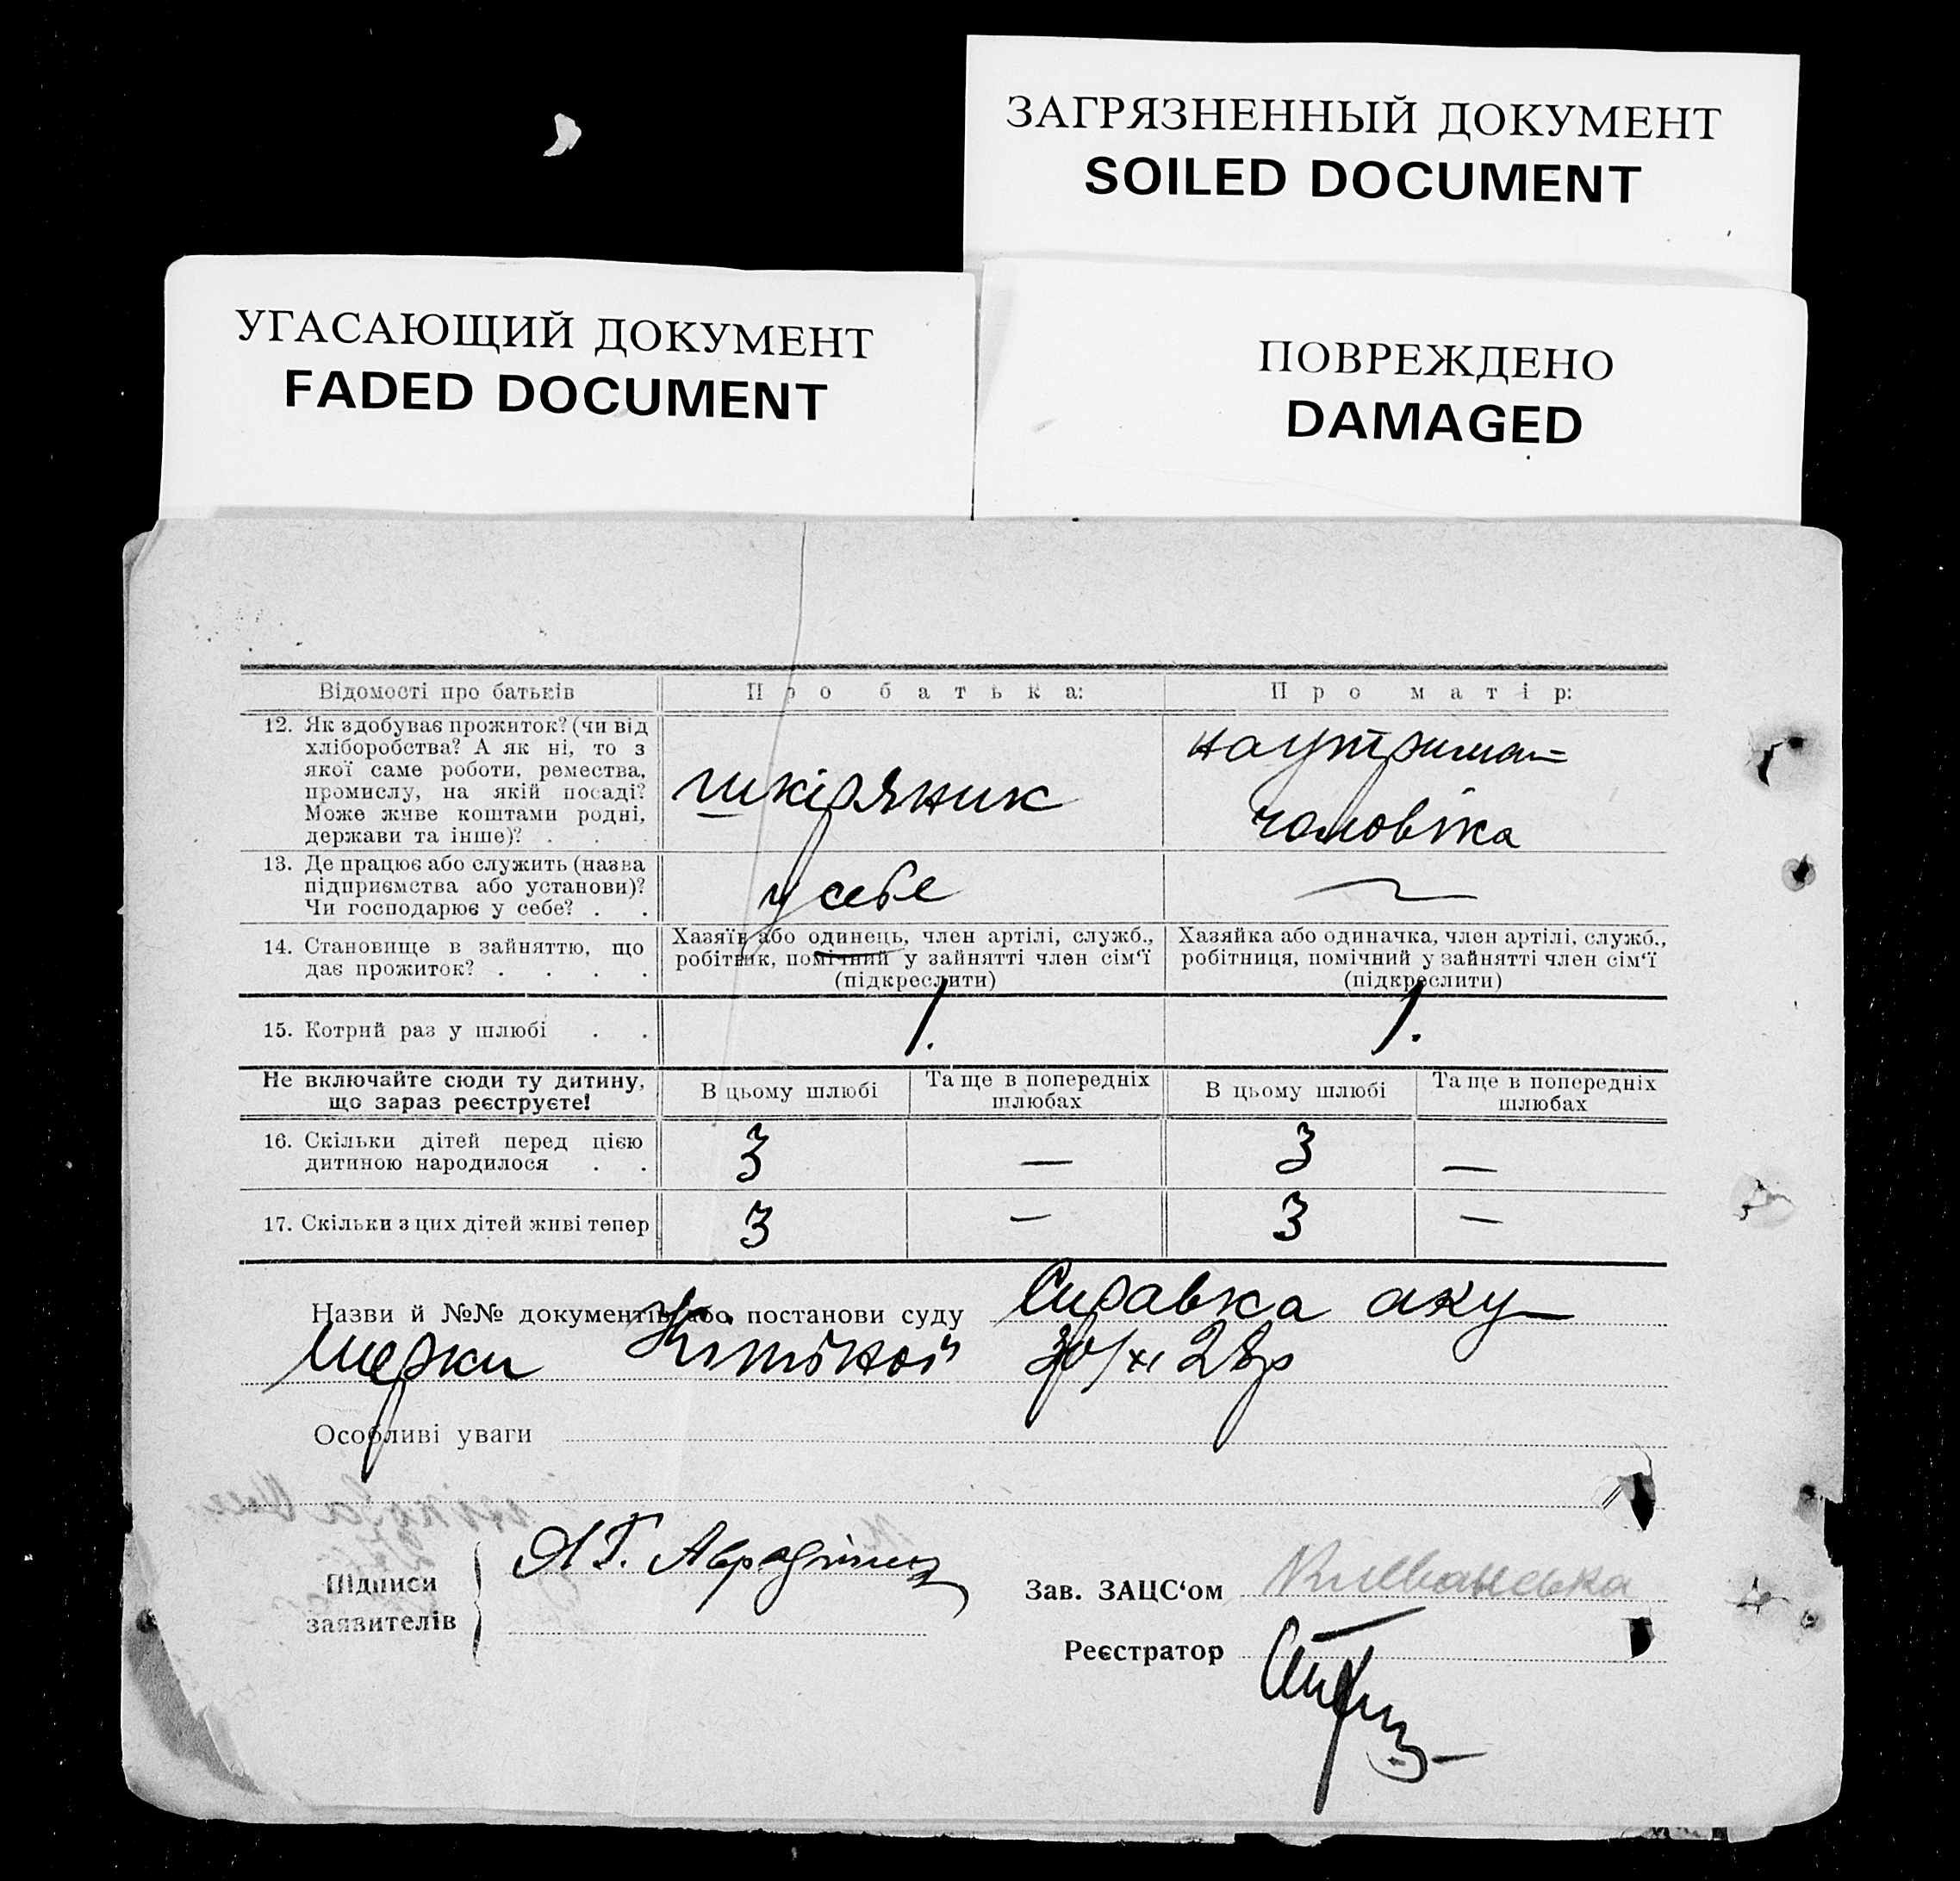 ЗАГРЯЗНЕННЫЙ ДОКУМЕНТ
SOILED DOCUMENT
УГАСАЮЩИЙ ДОКУМЕНТ
FADED DOCUMENT
ПОВРЕЖДЕНО
DAMAGED
Відомості про батьків
Про батька:
Про матір:
12. Як здобуває прожиток? (чи від
хліборобства? А як ні, то з
якої саме роботи, ремества,
промислу, на якій посаді?
Може живе коштами родні,
держави та інше)? .
шкіряник
на утриман=
чоловіка
13. Де працює або служить (назва
підприємства або установи)?
Чи господарює у себе? . .
у себе
—
14. Становище в зайняттю, що
дає прожиток? . . . .
Хазяїн або одинець, член артілі, служб.,
робітник, помічний у зайнятті член сім‘ї
(підкреслити)
Хазяйка або одиначка, член артілі, служб.,
робітниця, помічний у зайнятті член сім‘ї
(підкреслити)
15. Котрий раз у шлюбі . .
1.
1.
Не включайте сюди ту дитину,
що зараз реєструєте!
В цьому шлюбі
Та ще в попередніх
шлюбах
В цьому шлюбі
Та ще в попередніх
шлюбах
16. Скільки дітей перед цією
дитиною народилося . .
3 — 3 —
17. Скільки з цих дітей живі тепер
3 — 3 —
Назви й №№ документів або постанови суду Справка аку—
шерки 30/XI 28р
Особливі уваги
Підписи
заявителів
Зав. ЗАЦС‘ом
Реєстратор